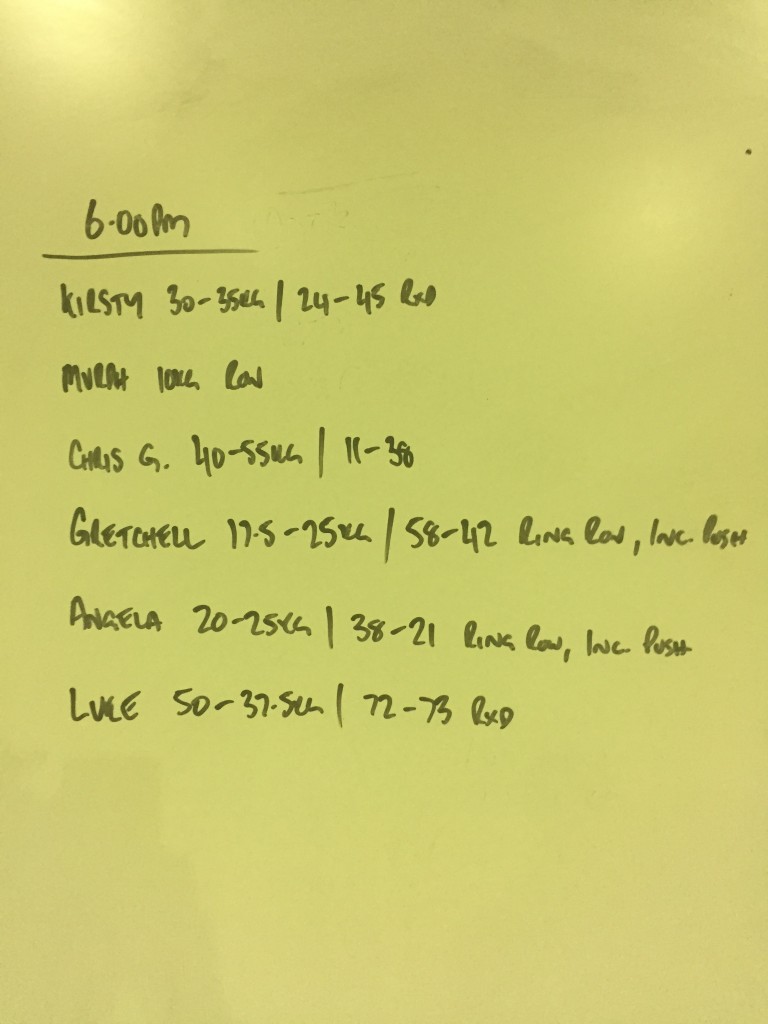 6.00pm
KIRSTY 30-35KG | 24-45 RXD
MURPH 10KG ROW
CHRIS G. 40-55KG | 11-38
GRETCHELL 17.5-25KG | 58-42 RING ROW, INC. PUSH
ANGELA 20-25KG | 38-21 RING ROW, INC. PUSH
LUKE 50-37.5KG | 72-73 RXD